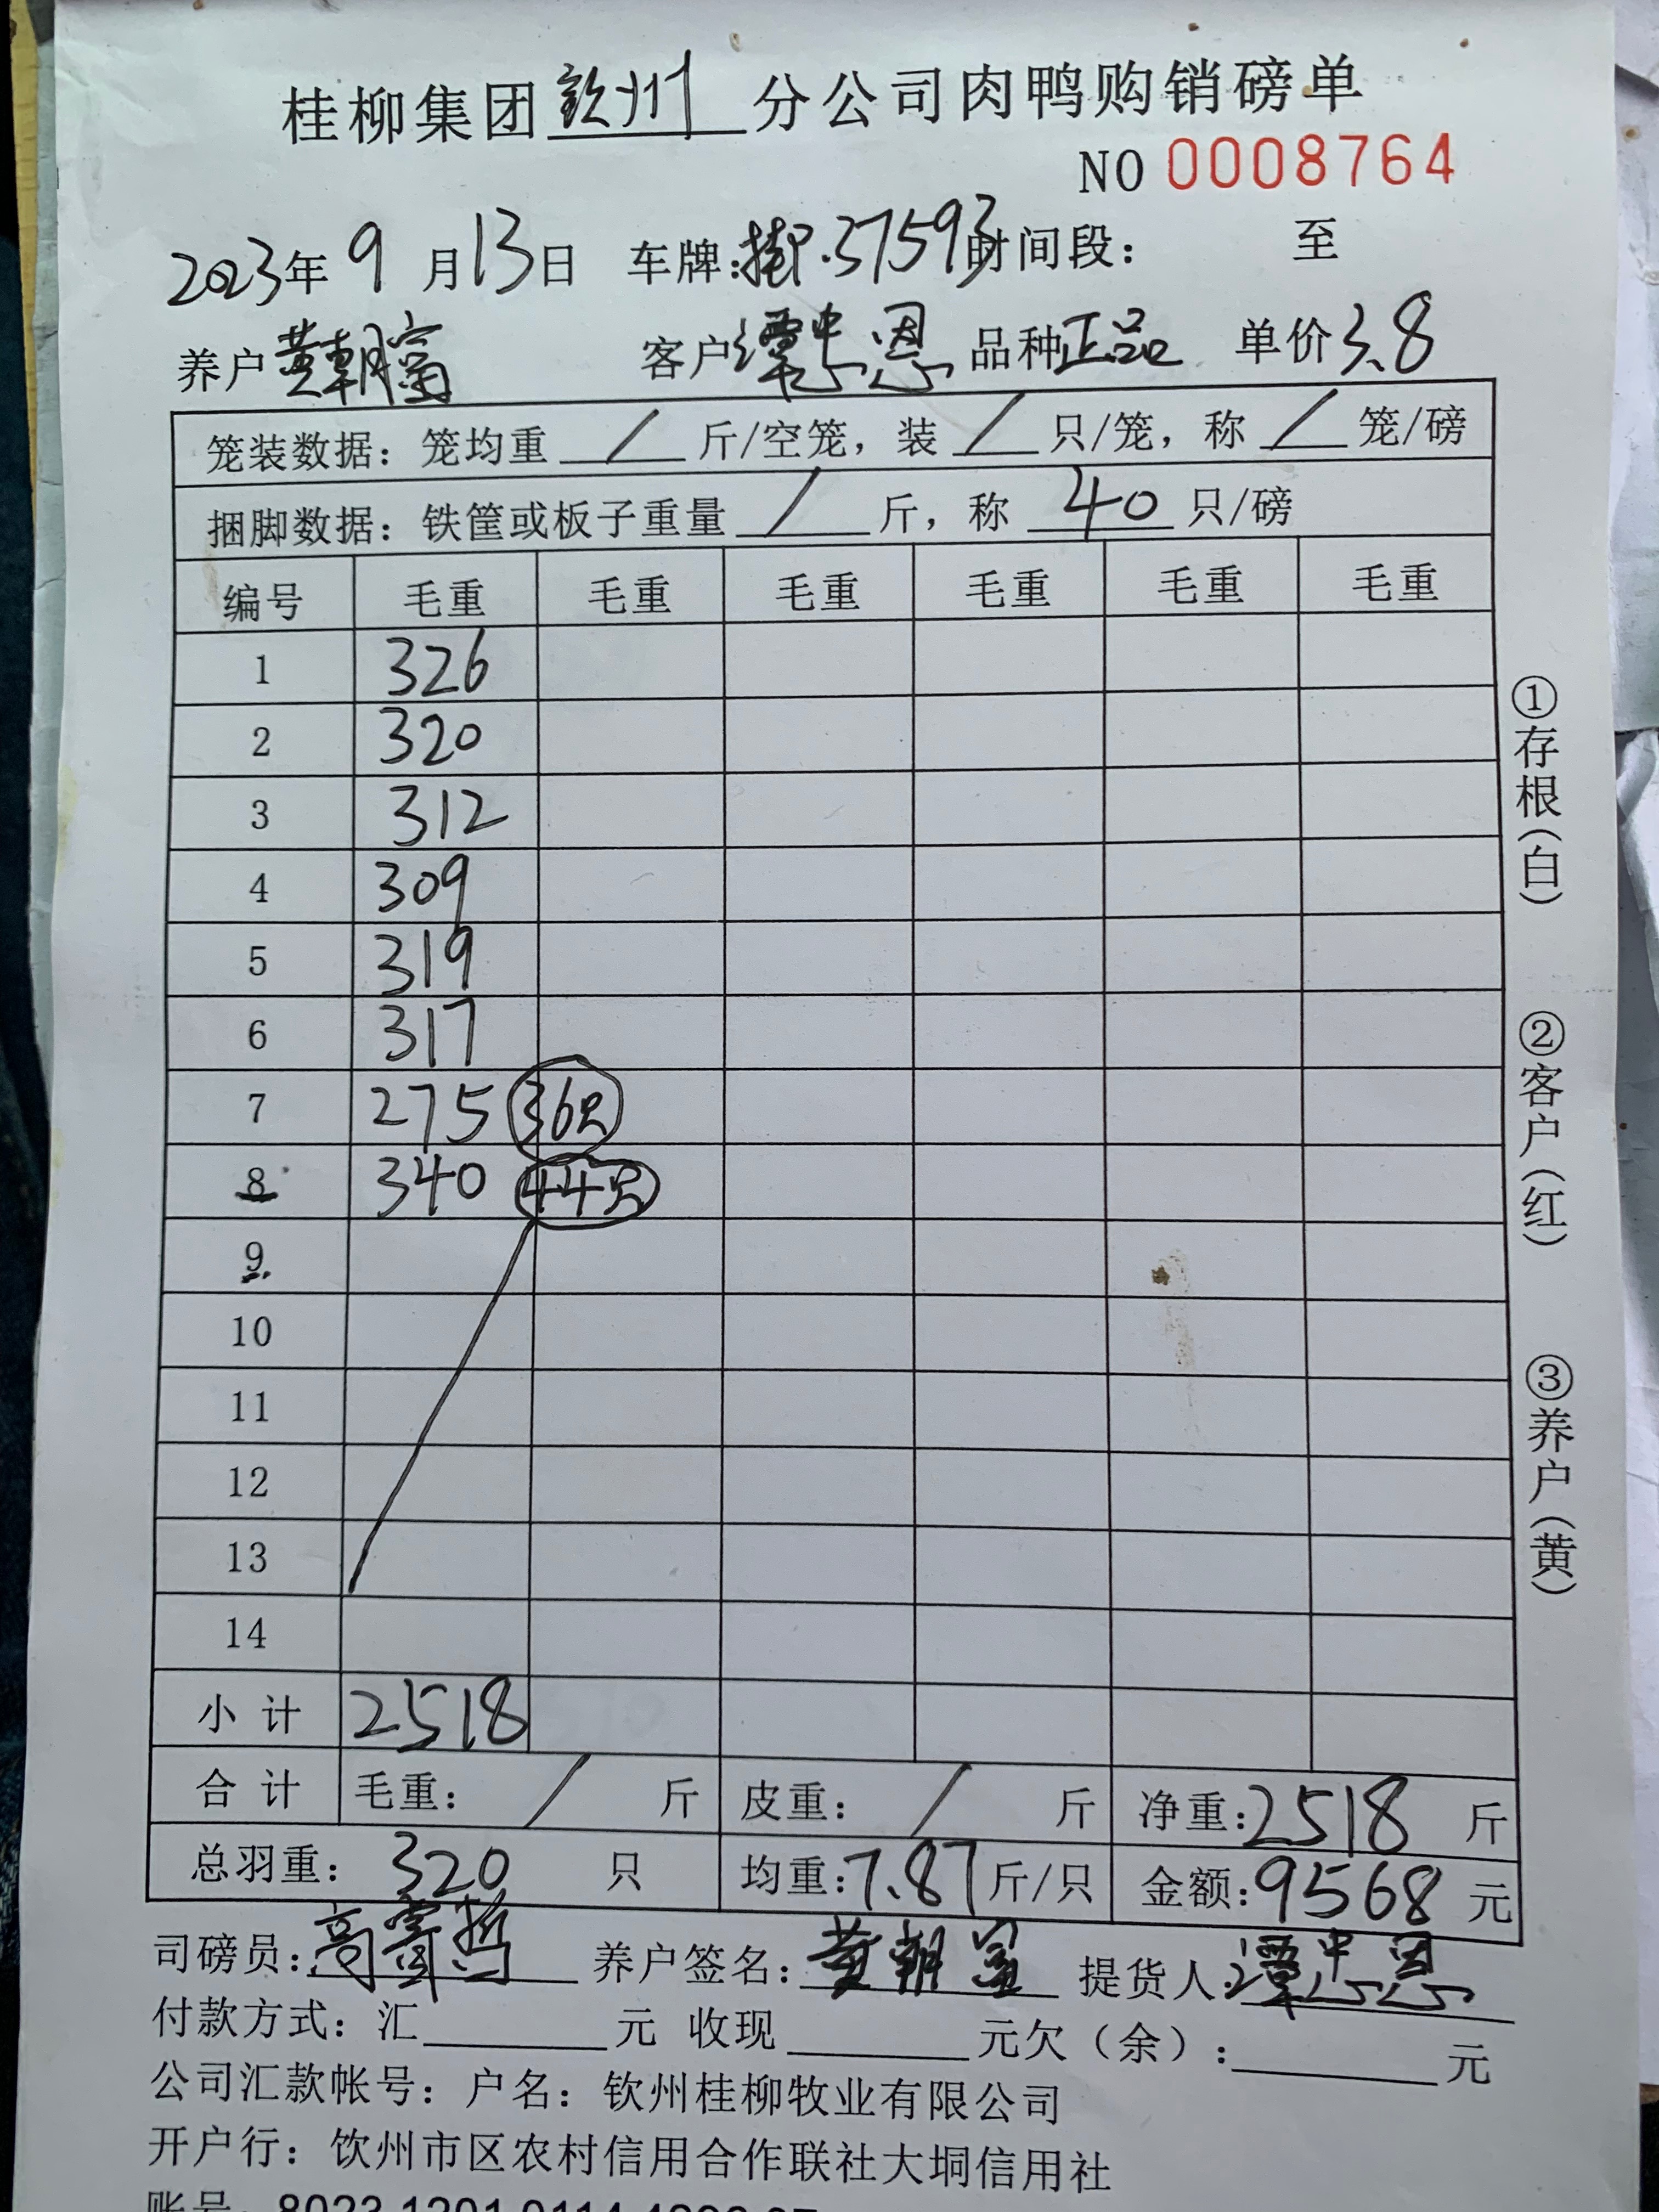 桂柳集团钦州分公司肉鸭购销磅单
NO 0008764
2023年9月13日 车牌:桂P.37593时间段: 至
养户黄朝富 客户谭忠恩 品种正品 单价3.8
笼装数据:笼均重 / 斤/空笼,装 / 只/笼,称 / 笼/磅
捆脚数据:铁筐或板子重量 / 斤,称 40 只/磅
编号 毛重 毛重 毛重 毛重 毛重 毛重
1 326
2 320
3 312
4 309
5 319
6 317
7 275 36只
8 340 44只
9
10
11
12
13
14
小计 2518
合计 毛重: / 斤 皮重: / 斤 净重:2518 斤
总羽重: 320 只 均重:7.87斤/只 金额:9568元
司磅员: 养户签名:黄朝富 提货人:谭忠恩
付款方式:汇 元 收现 元欠(余): 元
公司汇款帐号:户名:钦州桂柳牧业有限公司
开户行:钦州市区农村信用合作联社大垌信用社
账号:
①存根(白)
②客户(红)
③养户(黄)